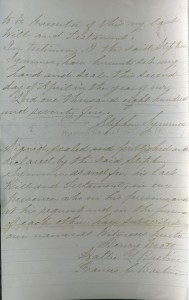 to be Executor of this my Last
Will and Testament.
In testimony I the said Stephen
have hereunto set my
hand and seal this second
day of April in the year of our
Lord one thousand eight hundred
and seventy five
Stephen
Signed, sealed and published and
declared by the said Stephen
as and for his last
Will and Testament, in our
presence who in his presence and
at his request and in the presence
of each other have subscribed
our names as witnesses hereto
Henry Scott
Francis